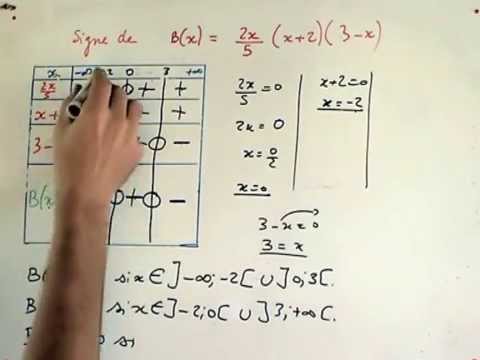 Signe de B(x) = 2x/5 (x+2)(3-x)
x -∞ 0 3 +∞
2x/5 0 + +
x+ + +
3- 0 -
B(x 0 + 0 -
2x/5 = 0
2x = 0
x = 0/2
x = 0
x+2=0
x = -2
3-x=0
3 = x
B( si x ∈ ]-∞; -2[ ∪ ]0; 3[.
B si x ∈ ]-2; 0[ ∪ ]3; +∞[.
si